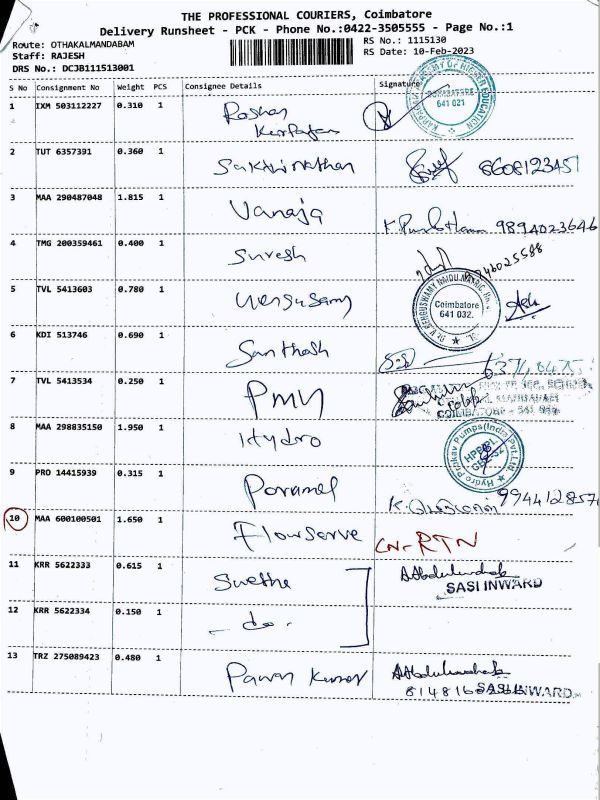 THE PROFESSIONAL COURIERS, Coimbatore
Delivery Runsheet - PCK - Phone No.:0422-3505555 - Page No.:1
Route: OTHAKALMANDABAM
Staff: RAJESH
DRS No.: DCJB111513001
RS No.: 1115130
RS Date: 10-Feb-2023
S No Consignment No Weight PCS Consignee Details Signature
1 IXM 503112227 0.310 1 Roshan
COIMBATORE 641 021
2 TUT 6357391 0.360 1 Sakthinathan
3 MAA 290487048 1.815 1 Vanaja 9894023646
4 TMG 200359461 0.400 1 Suresh
5 TVL 5413603 0.780 1
Coimbatore 641 032.
6 KDI 513746 0.690 1 Santhosh
7 TVL 5413534 0.250 1 PMN
COIMBATORE
8 MAA 298835150 1.950 1 Hydro
Hydro Prokav Pumps(India)Pvt.Ltd.
9 PRO 14415939 0.315 1
10 MAA 600100501 1.650 1 Flowserve CN-RTN
11 KRR 5622333 0.615 1 Swetha
SASI INWARD
12 KRR 5622334 0.150 1 - do -
13 TRZ 275089423 0.480 1 Pavan Kumar
SASI INWARD